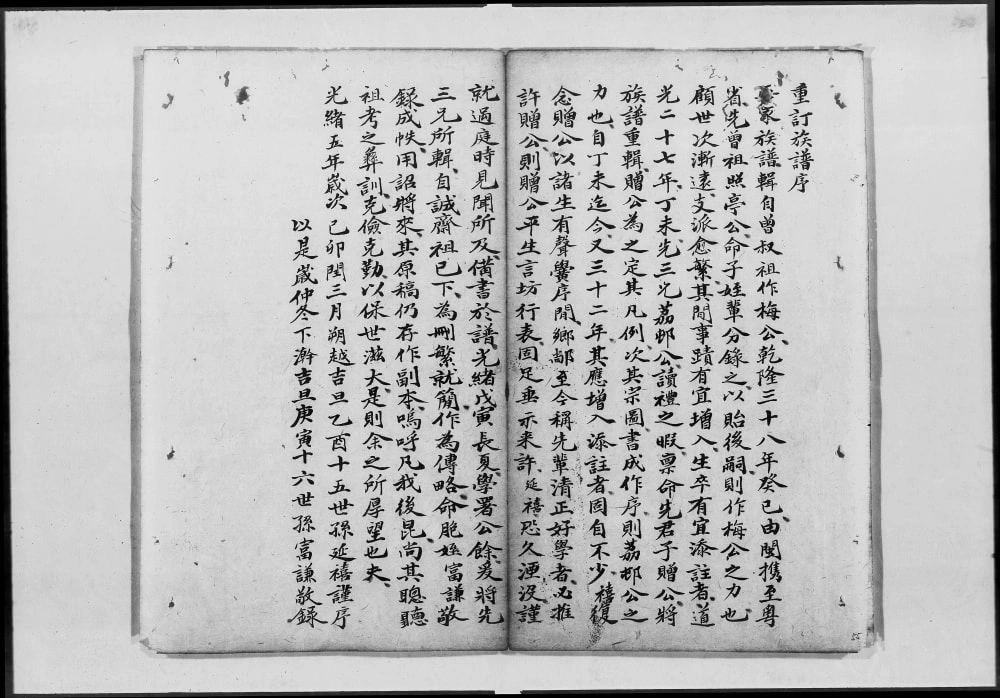 重訂族譜序
家族譜輯自曾叔祖作梅公乾隆三十八年癸巳由閩携至粤
省先曾祖照亭公命子姪輩分錄之以貽後嗣則作梅公之力也
顧世次漸遠支派愈繁其間事蹟有宜增入生卒有宜添註者道
光二十七年丁未先三兄荔邨公讀禮之暇禀命先君子贈公將
族譜重輯贈公為之定其凡例次其宗圖書成作序則荔邨公之
力也自丁未迄今又三十二年其應增入添註者固自不少禧復
念贈公以諸生有聲黌序間鄉鄰至今稱先輩清正好學者必推
許贈公則贈公平生言坊行表固足垂示来許延禧恐久湮没謹
就過庭時見聞所及備書於譜光緒戊寅長夏學署公餘爰將先
三兄所輯自誠齋祖已下為刪繁就簡作為傳略命胞姪富謙敬
錄成帙用詔將來其原稿仍存作副本嗚呼凡我後昆尚其聰聽
祖考之彝訓克儉克勤以保世滋大是則余之所厚望也夫
光緒五年歲次己卯閏三月朔越吉旦乙酉十五世孫延禧謹序
以是歲仲冬下澣吉旦庚寅十六世孫富謙敬錄
55